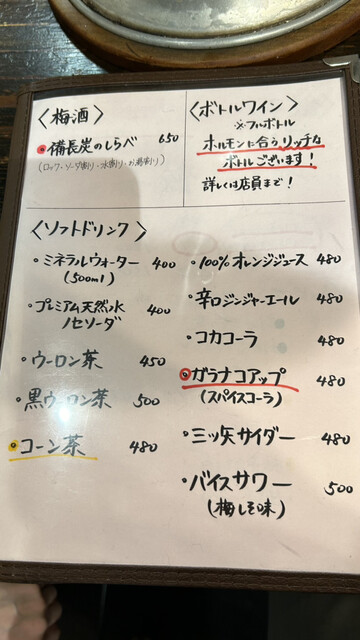 〈梅酒〉
・備長炭のしらべ 650
(ロック・ソーダ割り・水割り・お湯割り)
〈ボトルワイン〉
※フルボトル
ホルモンに合うリッチな
ボトルございます!
詳しくは店員まで!
〈ソフトドリンク〉
・ミネラルウォーター 400
(500ml)
・プレミアム天然水 400
ノセソーダ
・ウーロン茶 450
・黒ウーロン茶 500
・コーン茶 480
・100%オレンジジュース 480
・辛口ジンジャーエール 480
・コカコーラ 480
・ガラナコアップ 480
(スパイスコーラ)
・三ッ矢サイダー 480
・バイスサワー 500
(梅しそ味)